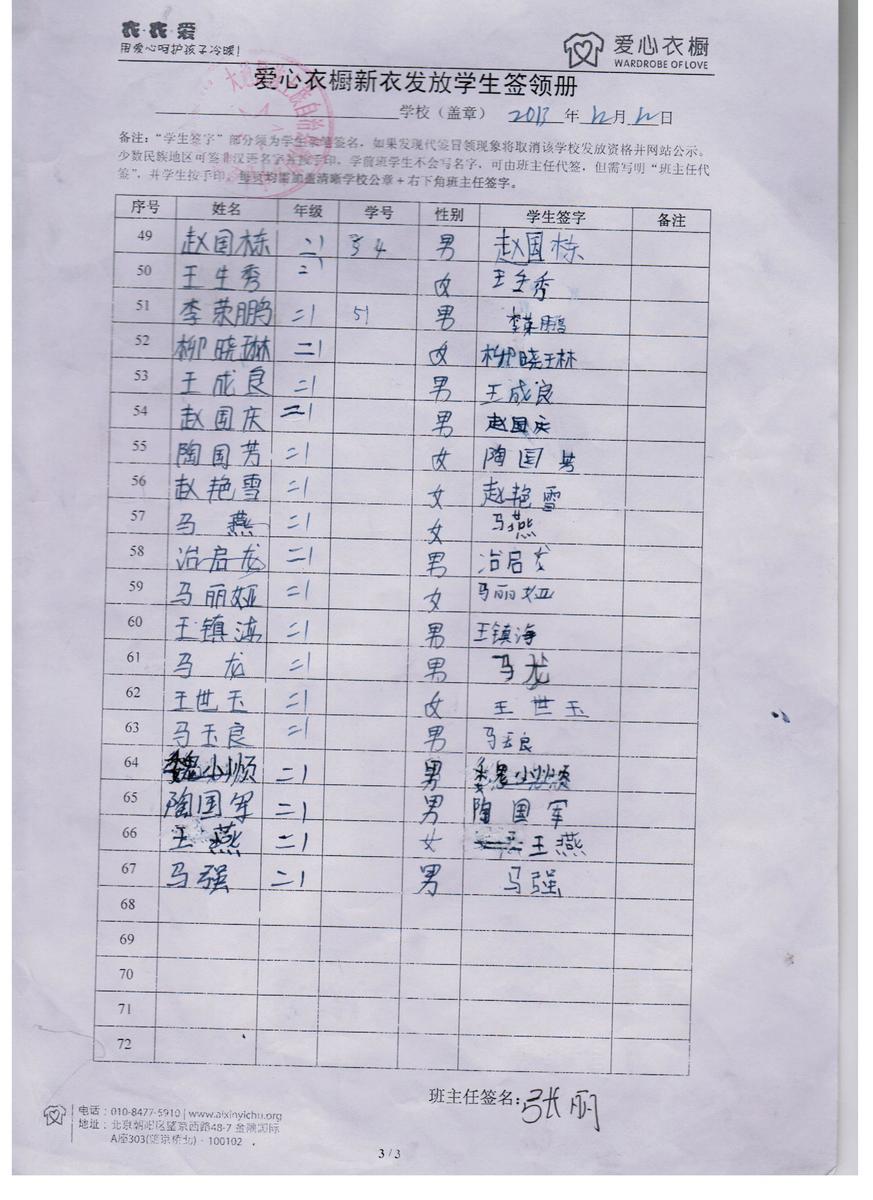 衣·衣·爱
用爱心呵护孩子冷暖!
爱心衣橱
WARDROBE OF LOVE
爱心衣橱新衣发放学生签领册
学校(盖章) 2013 年 12 月 12 日
备注:“学生签字”部分须为学生亲笔签名,如果发现代签冒领现象将取消该学校发放资格并网站公示。
少数民族地区可签非汉语名字并按手印,学前班学生不会写名字,可由班主任代签,但需写明“班主任代
签”,并学生按手印,每页均需加盖清晰学校公章+右下角班主任签字。
序号 姓名 年级 学号 性别 学生签字 备注
49 赵国栋 二1 54 男 赵国栋
50 王生秀 二1 女 王生秀
51 李荣鹏 二1 51 男 李荣鹏
52 柳晓琳 二1 女 柳晓琳
53 王成良 二1 男 王成良
54 赵国庆 二1 男 赵国庆
55 陶国芳 二1 女 陶国芳
56 赵艳雪 二1 女 赵艳雪
57 马燕 二1 女 马燕
58 冶启龙 二1 男 冶启龙
59 马丽娅 二1 女 马丽娅
60 王镇海 二1 男 王镇海
61 马龙 二1 男 马龙
62 王世玉 二1 女 王世玉
63 马玉良 二1 男 马玉良
64 魏小 二1 男 魏小
65 陶国军 二1 男 陶国军
66 王燕 二1 女 王燕
67 马强 二1 男 马强
68
69
70
71
72
班主任签名:张丽
电话:010-8477-5910 | www.aixinyichu.org
地址:北京朝阳区望京西路48-7 金隅国际
A座303(望京桥北)·100102
3 / 3